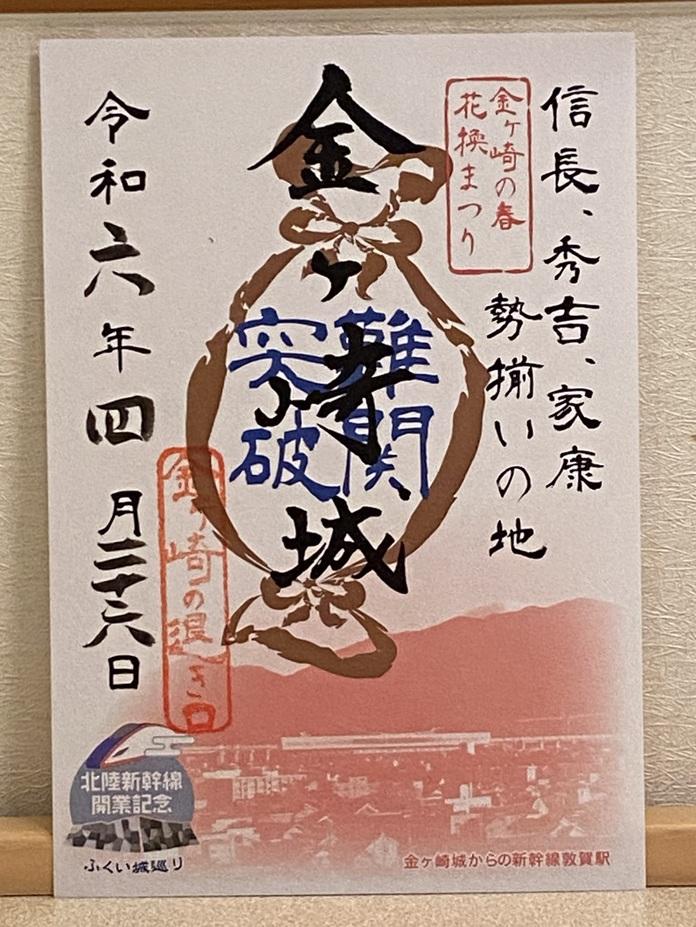 信長、秀吉、家康
勢揃いの地
金ヶ崎の春
花換まつり
金ヶ崎城
難関
突破
令和六年四月二十六日
金ヶ崎の退き口
北陸新幹線
開業記念
ふくい城巡り
金ヶ崎城からの新幹線敦賀駅